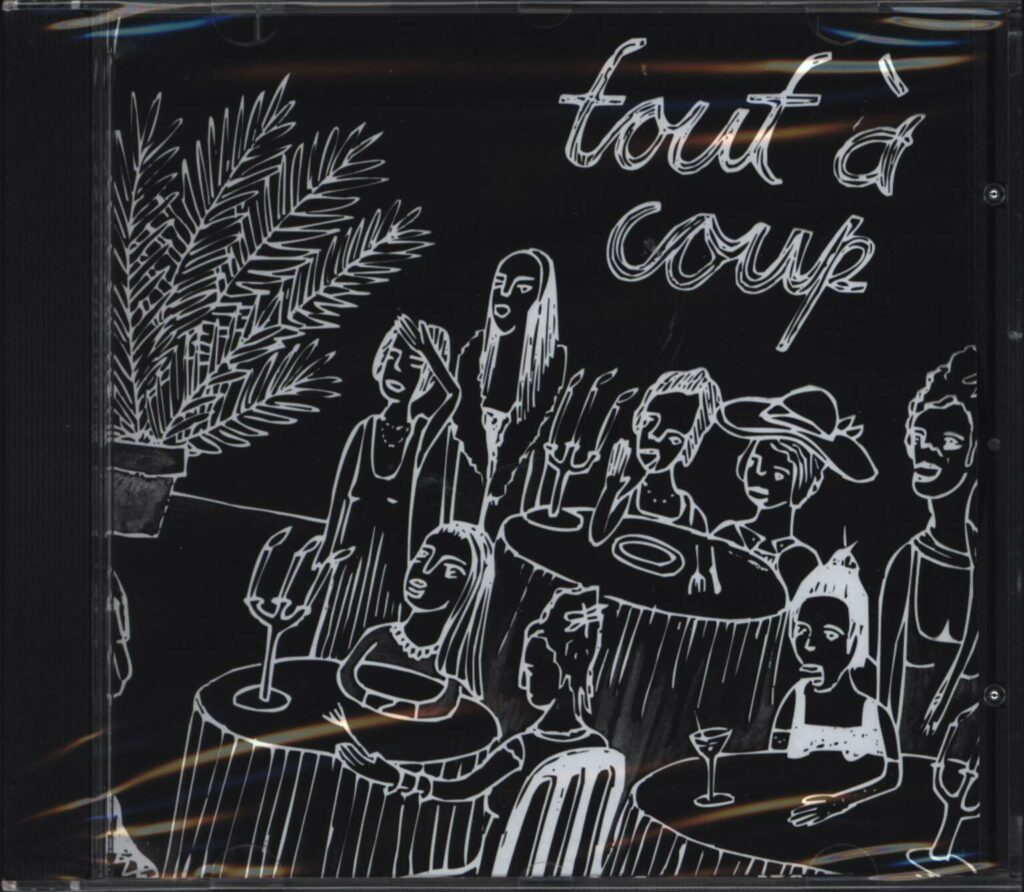 tout à
coup